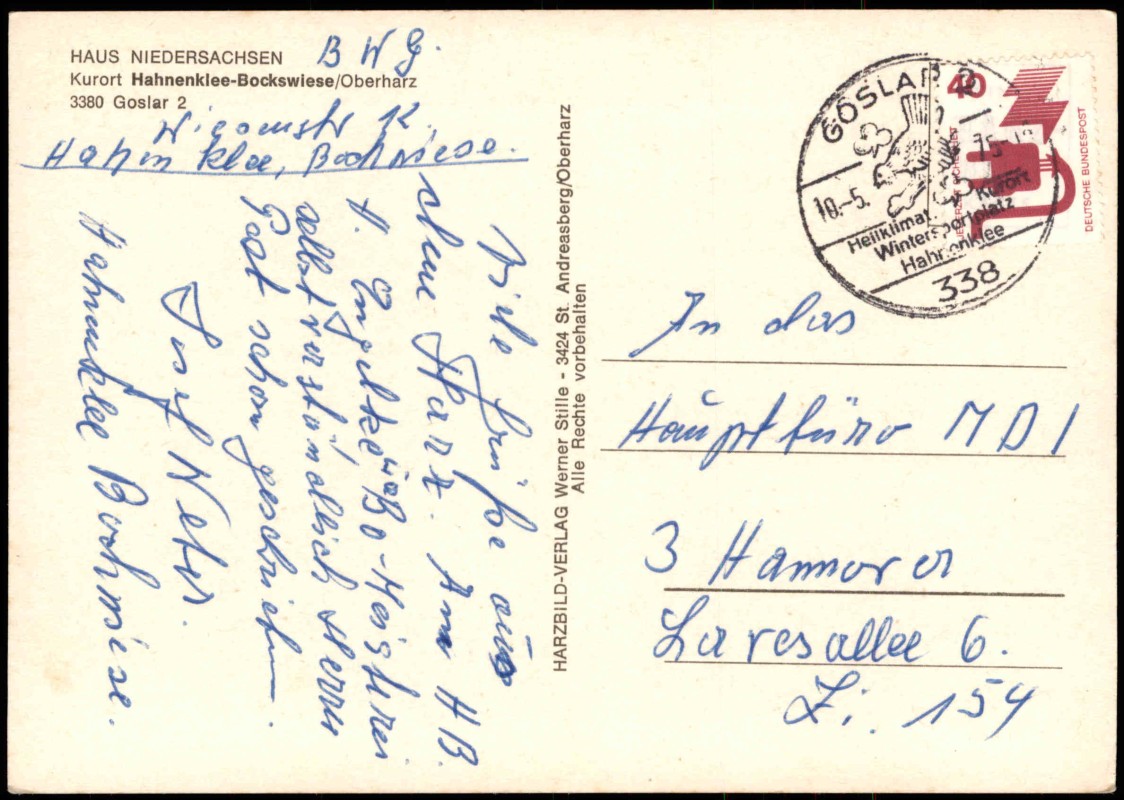 HAUS NIEDERSACHSEN
Kurort Hahnenklee-Bockswiese/Oberharz
3380 Goslar 2
B W G.
12,
Hahnenklee, Bockswiese.
Viele Grüße aus
dem Harz. Am HB.
selbstverständlich Herrn
Post schon geschrieben.
Josef Weber.
Hahnenklee Bockswiese.
HARZBILD-VERLAG Werner Stille - 3424 St. Andreasberg/Oberharz
Alle Rechte vorbehalten
GOSLAR 2
10.-5. 75-18
Heilklimat. Kurort
Wintersportplatz
Hahnenklee
338
40
DEUTSCHE BUNDESPOST
An das
Hauptbüro MDI
3 Hannover
Lavesallee 6.
Zi. 154